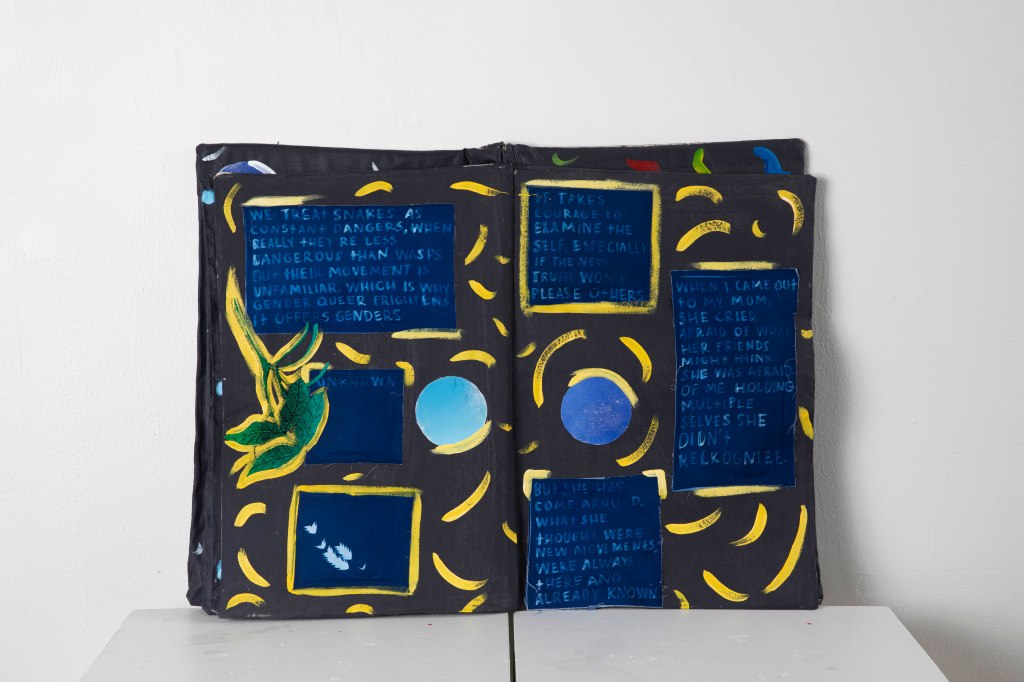 WE TREAT SNAKES AS
CONSTANT DANGERS, WHEN
REALLY THEY'RE LESS
DANGEROUS THAN WASPS
BUT THEIR MOVEMENT IS
UNFAMILIAR. WHICH IS WHY
GENDER QUEER FRIGHTENS
IT OFFERS GENDERS
UNKNOWN
IT TAKES
COURAGE TO
EXAMINE THE
SELF, ESPECIALLY
IF THE NEW
TRUTH WON'T
PLEASE OTHERS
WHEN I CAME OUT
TO MY MOM,
SHE CRIED
AFRAID OF WHAT
HER FRIENDS
MIGHT THINK
SHE WAS AFRAID
OF ME HOLDING
MULTIPLE
SELVES SHE
DIDN'T
RECKOGNIZE.
BUT SHE HAS
COME AROUND.
WHAT SHE
THOUGHT WERE
NEW MOVEMENTS,
WERE ALWAYS
THERE AND
ALREADY KNOWN